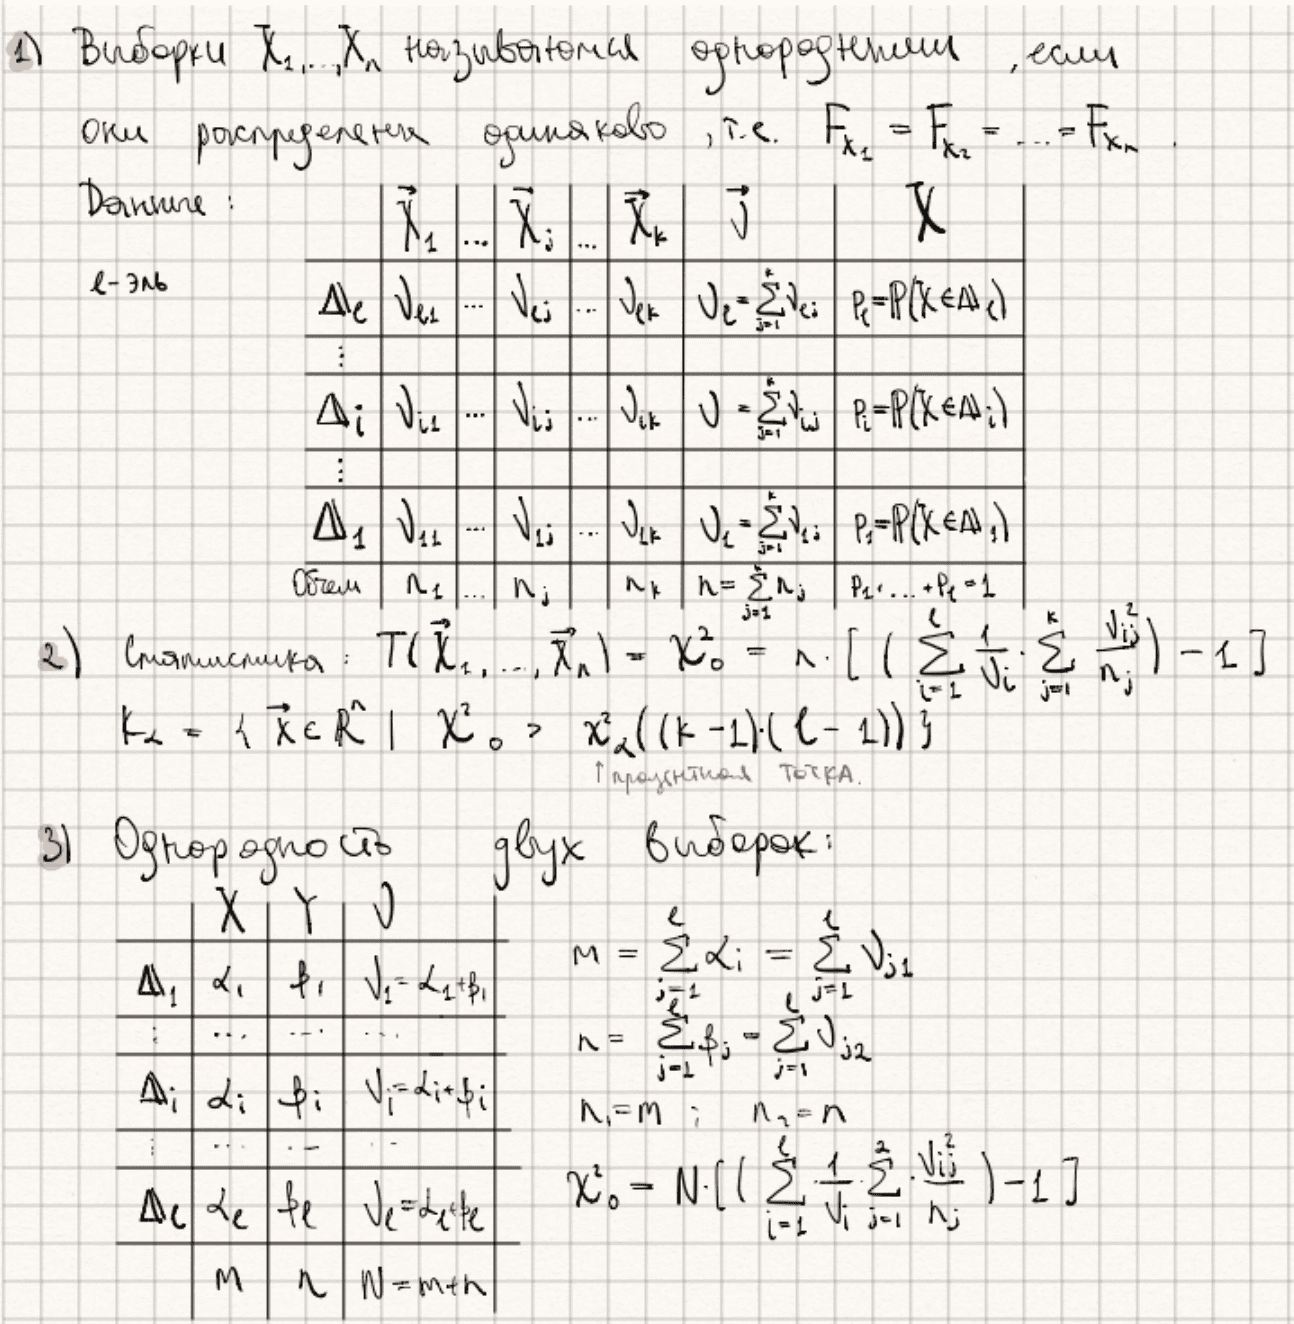 1) Выборки X₁,...,Xₙ называются однородными, если
они распределены одинаково, т.е. F_X₁ = F_X₂ = ... = F_Xₙ.
Данные:
l-эль
X⃗₁ ... X⃗ⱼ ... X⃗ₖ ν⃗ X
Δₗ νₗ₁ ... νₗⱼ ... νₗₖ νₗ = Σ_{j=1}^{k} νₗⱼ pₗ = P(X ∈ Δₗ)
⋮
Δᵢ νᵢ₁ ... νᵢⱼ ... νᵢₖ ν = Σ_{j=1}^{k} νᵢⱼ pᵢ = P(X ∈ Δᵢ)
⋮
Δ₁ ν₁₁ ... ν₁ⱼ ... ν₁ₖ ν₁ = Σ_{j=1}^{k} ν₁ⱼ p₁ = P(X ∈ Δ₁)
Объем n₁ ... nⱼ nₖ n = Σ_{j=1}^{k} nⱼ p₁+...+pₗ = 1
2) Статистика: T(X⃗₁,...,X⃗ₙ) = χ²₀ = n·[(Σ_{i=1}^{l} 1/νᵢ · Σ_{j=1}^{k} νᵢⱼ²/nⱼ) − 1]
K_α = { x⃗ ∈ Rⁿ | χ²₀ > χ²_α((k−1)·(l−1)) }
↑ процентная точка.
3) Однородность двух выборок:
X Y ν
Δ₁ α₁ β₁ ν₁ = α₁+β₁
⋮ ... ... ...
Δᵢ αᵢ βᵢ νᵢ = αᵢ+βᵢ
⋮ ... ... ...
Δₗ αₗ βₗ νₗ = αₗ+βₗ
m n N = m+n
m = Σ_{j=1}^{l} αᵢ = Σ_{j=1}^{l} νⱼ₁
n = Σ_{j=1}^{l} βⱼ = Σ_{j=1}^{l} νⱼ₂
n₁ = m ; n₂ = n
χ²₀ = N·[(Σ_{i=1}^{l} 1/νᵢ Σ_{j=1}^{2} · νᵢⱼ²/nⱼ) − 1]